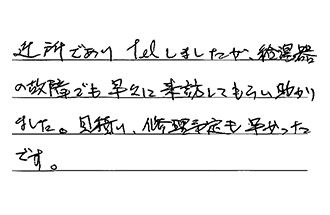 近所であり Telしましたが、給湯器
の故障でも早々に来訪してもらい助かり
ました。見積り、修理予定も早かった
です。